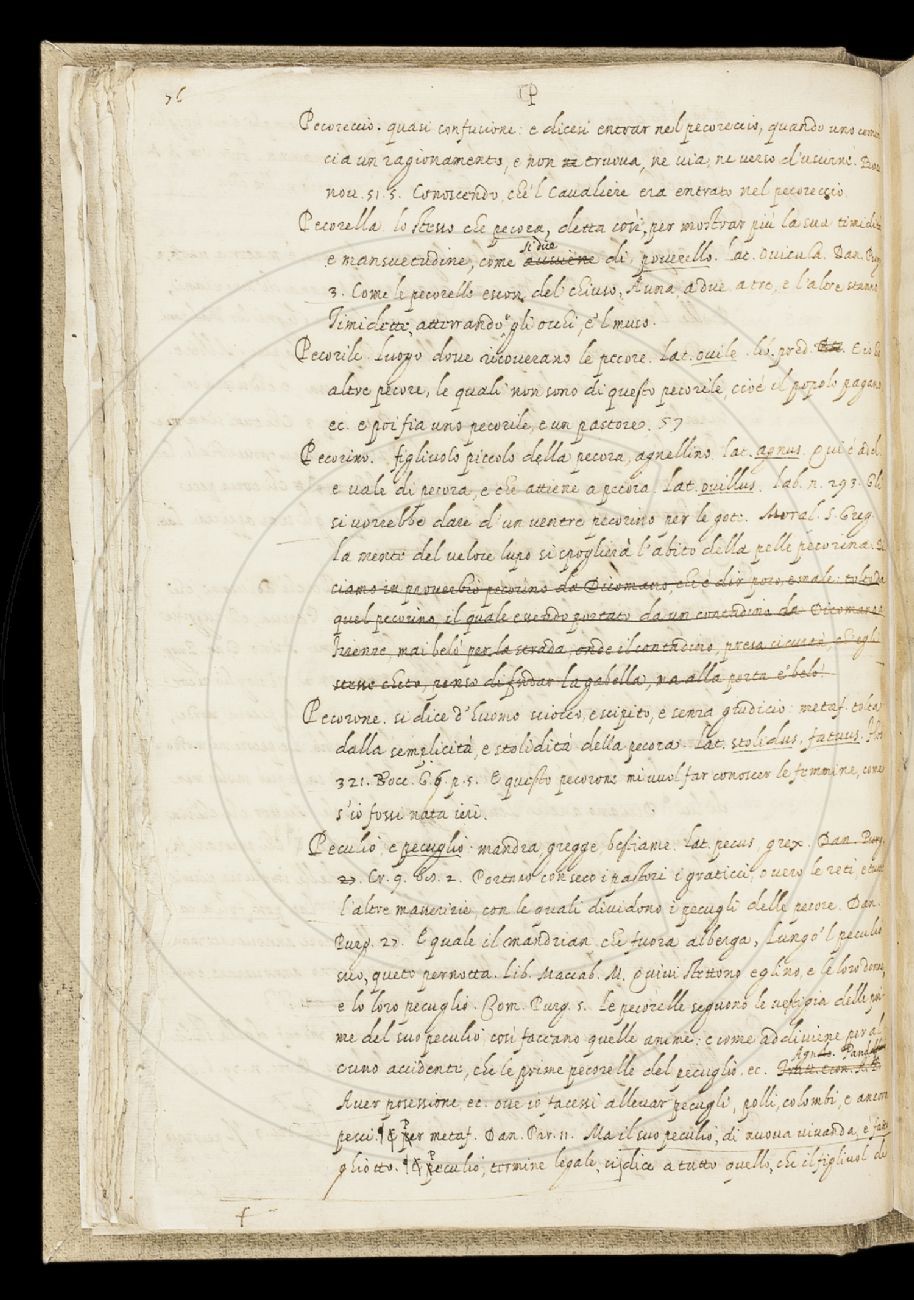 76
P
Pecoreccio. quasi confusione: e dicesi entrar nel pecoreccio, quando uno comin
cia un ragionamento, e non truova, ne via, ne verso d'uscirne. Bocc.
nov. 51. 5. Conoscendo, che'l Cavaliere era entrato nel pecoreccio.
Pecorella. lo stesso che pecora, detta così, per mostrar più la sua timidità
si dice
e mansuetudine, come avviene di, poverello. lat. ovicula. Dan. Purg.
3. Come le pecorelle escon del chiuso, A una, a due, a tre, e l'altre stanno
Timidette, atterrando gli occhi, e'l muso.
Pecorile. luogo dove ricoverano le pecore. lat. ovile. lib. pred. E io ho
altre pecore, le quali non sono di questo pecorile, cioè il popolo pagano
ec. e poi fia uno pecorile, e un pastore. 57
Pecorino. figliuolo piccolo della pecora, agnellino. lat. agnus. Qui è add.
e vale di pecora, e che attiene a pecora. lat. ovillus. lab. n. 293. Gli
si vorrebbe dare d'un ventre pecorino per le gote. Moral. S. Greg.
la mente del veloce lupo si spoglierà l'abito della pelle pecorina. Di
ciamo in proverbio pecorino da Dicomano, che è dir poco e male: tolto da
quel pecorino, il quale essendo portato da un contadino da Dicomano a
Firenze, mai belò per la strada, onde il contadino, preso sicurtà, ch'egli
stesse cheto, pensò di frodar la gabella, ma alla porta e' belò.
Pecorone. si dice d'huomo sciocco, e scipito, e senza giudicio: metaf. tolta
dalla semplicità, e stolidità della pecora. lat. stolidus, fatuus.
321. Bocc. G. 6. p. 5. E questo pecorone mi vuol far conoscer le femmine, come
s'io fossi nata ieri.
Peculio, e pecuglio: mandra, gregge, bestiame. lat. pecus, grex. Dan. Purg.
27. Cr. 9. 2. Portano con seco i pastori i graticci, o vero le reti, e tutte
l'altre masserizie, con le quali dividono i pecugli delle pecore. Dan.
Purg. 27. E quale il mandrian, che fuora alberga, Lungo'l peculio
suo, queto pernotta. lib. Maccab. M. Quivi stettono eglino, e le loro donne,
e lo loro pecuglio. Com. Purg. 5. Le pecorelle seguono le vestigia delle pri
me del suo peculio, così faccano quelle anime: e come addiviene per al
Agnolo. Pandolfini
cuno accidente, che le prime pecorelle del pecuglio. ec.
Aver possessione, ec. ove io facessi allevar pecugli, polli, colombi, e ancora
pesci. ¶ Per metaf. Dan. Par. 11. Ma il suo peculio, di nuova vivanda, è fatto
ghiotto. ¶ Peculio, termine legale, si dice a tutto quello, che il figliuol di
f